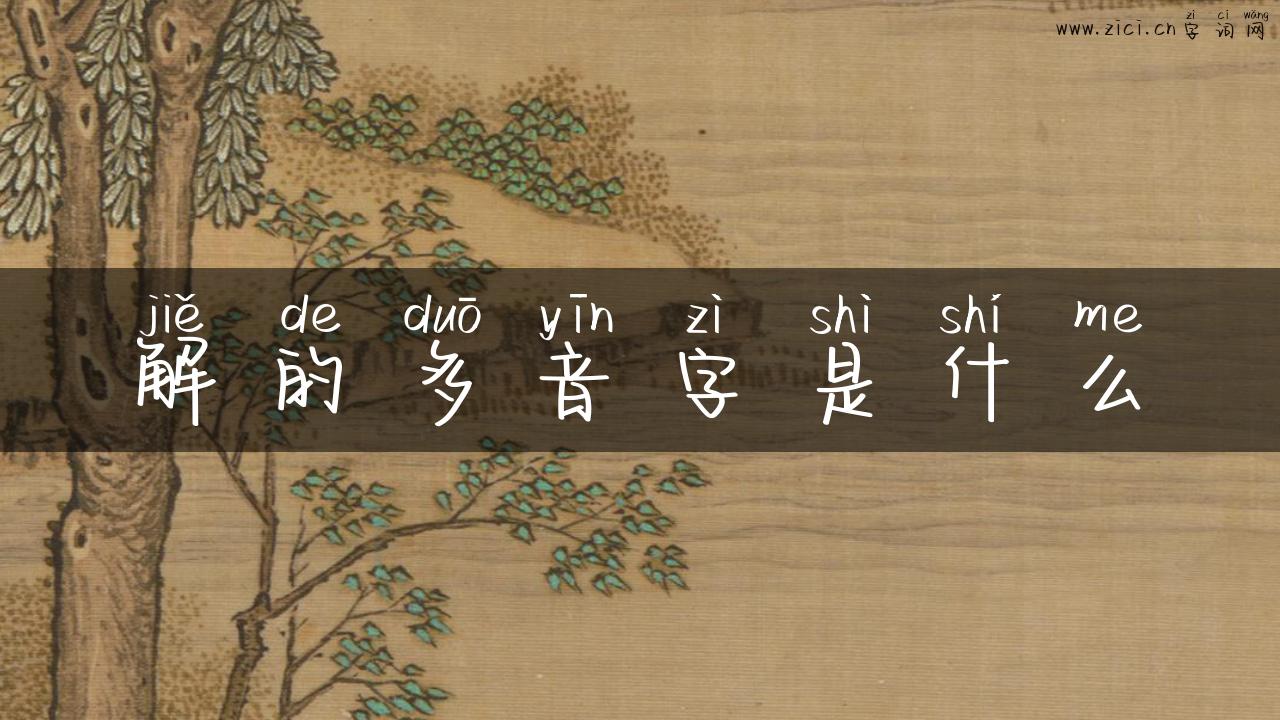 zì cí wǎng
www.zici.cn字词网
jiě de duō yīn zì shì shí me
解的多音字是什么